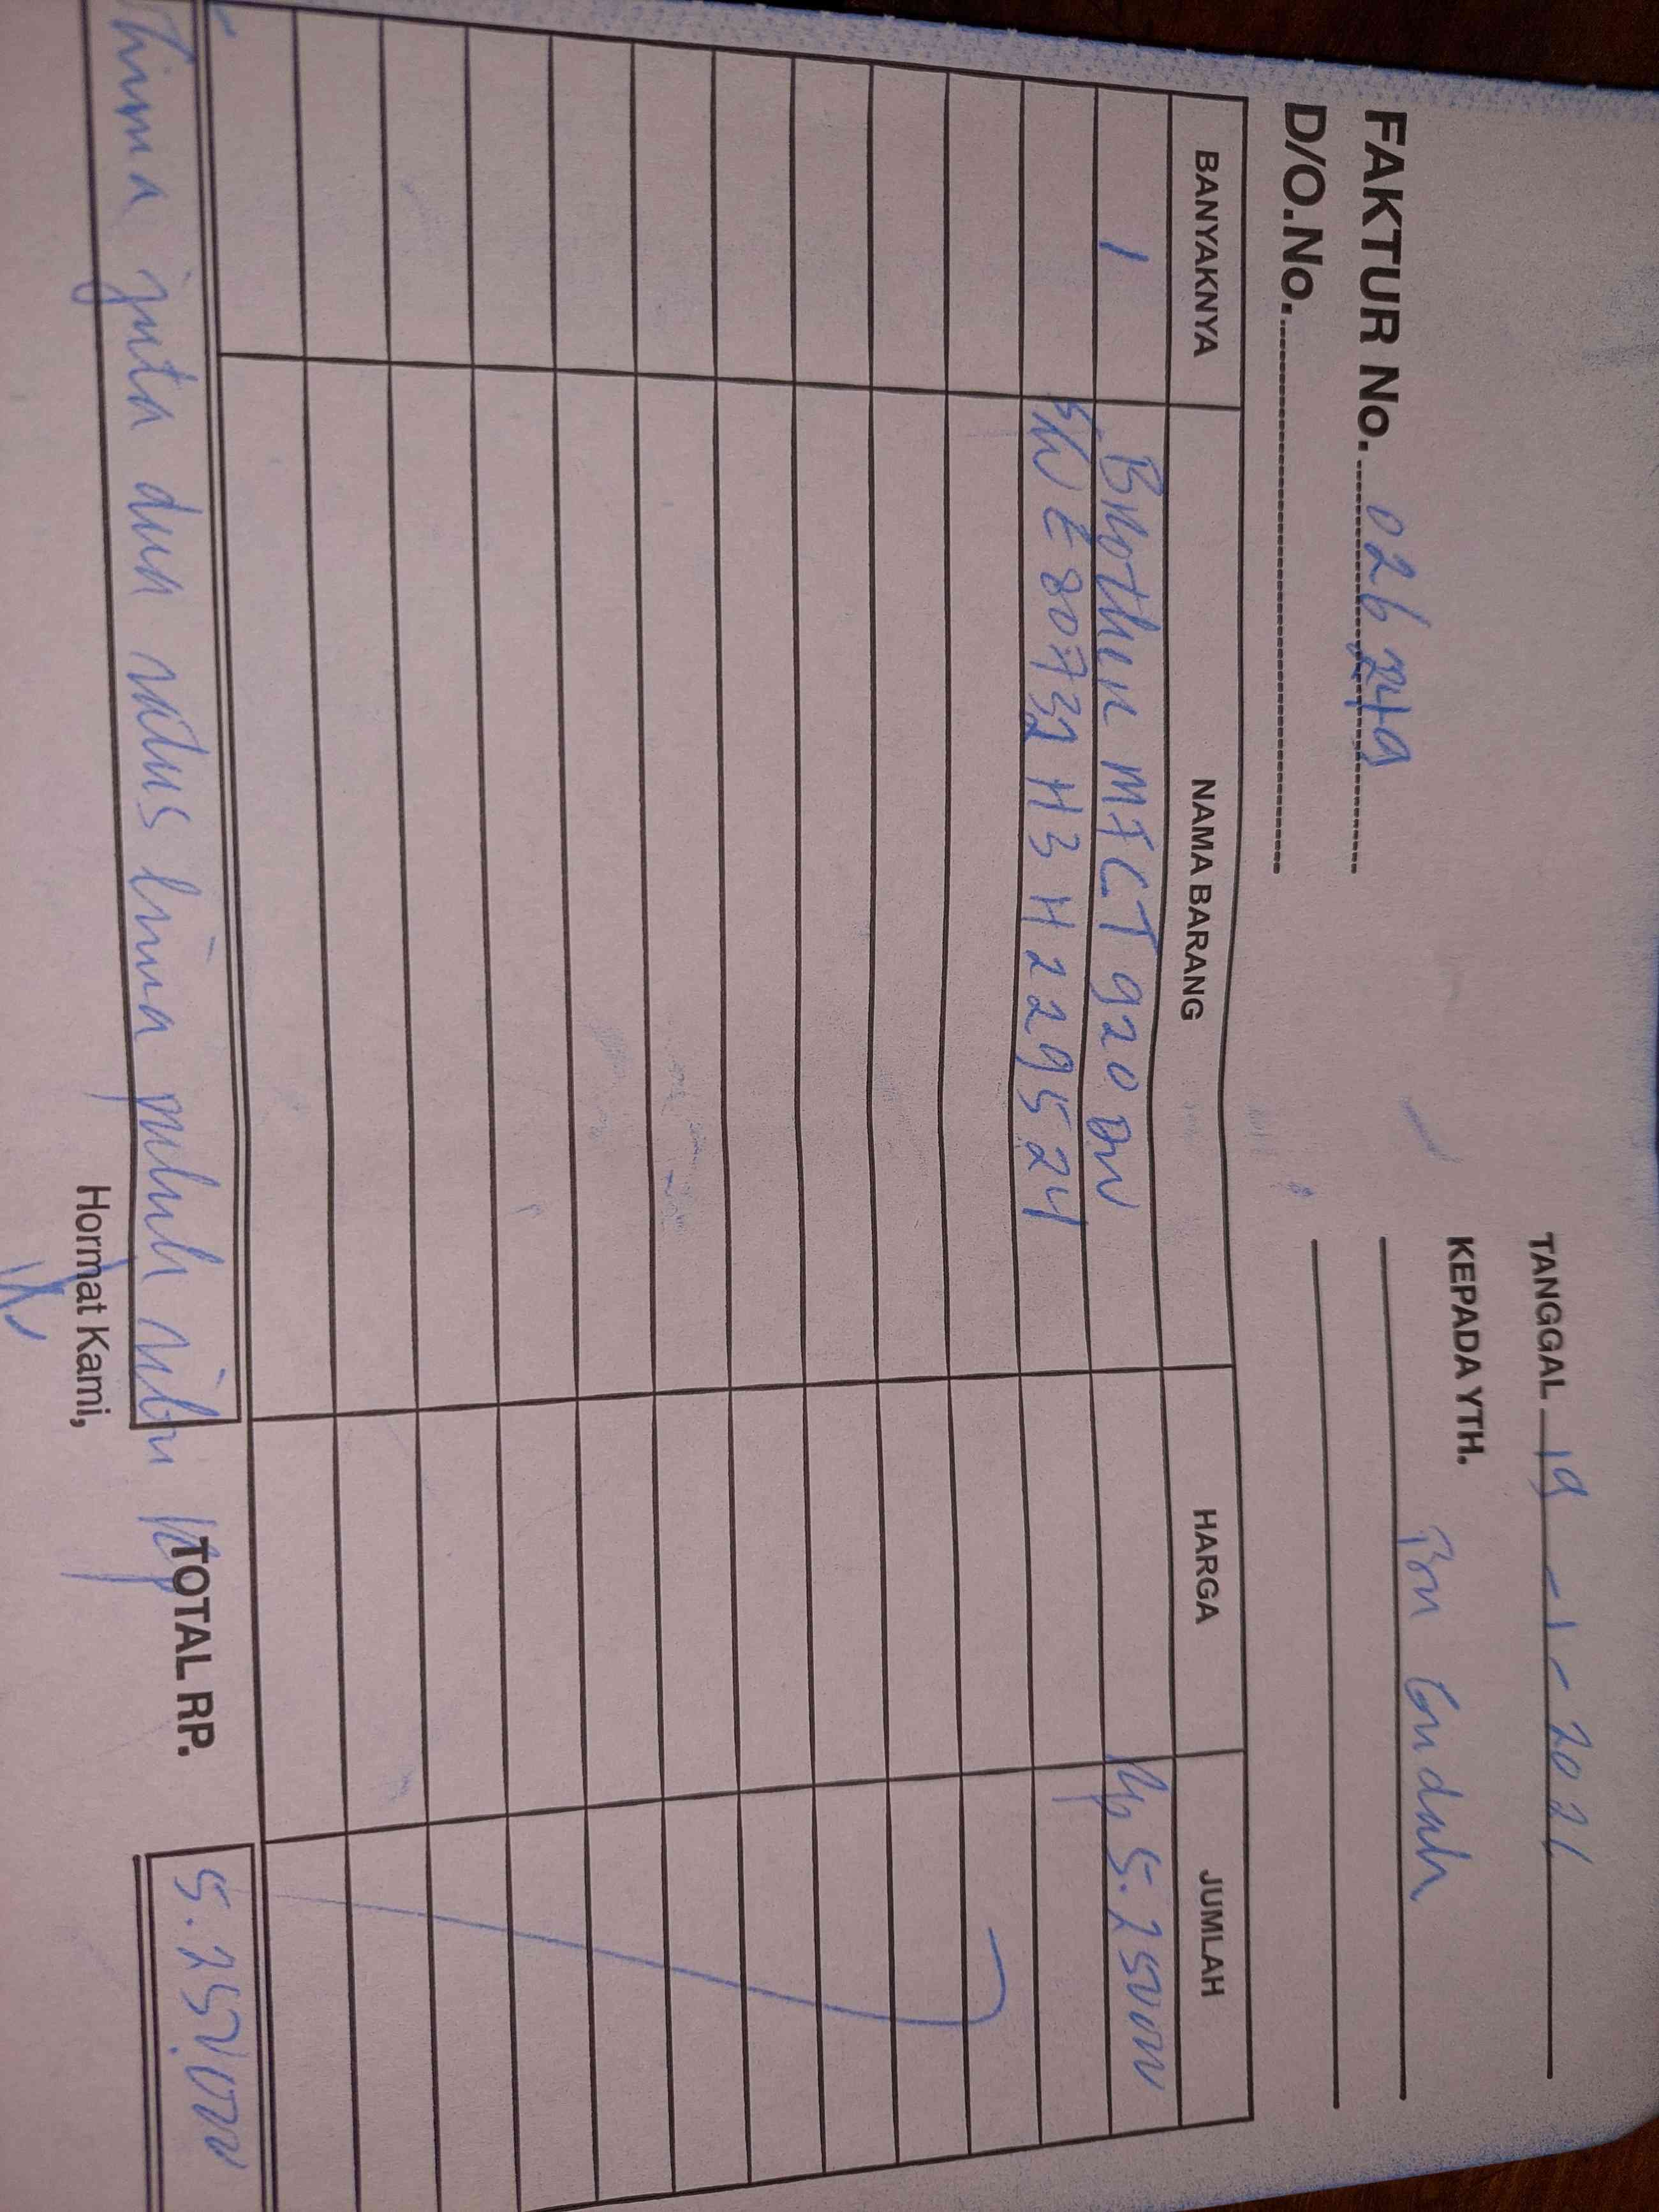 TANGGAL 19 - 1 - 2021
KEPADA YTH.
Bu Endah
FAKTUR No. 026249
D/O.No.
BANYAKNYA NAMA BARANG HARGA JUMLAH
1 Brother MFCT 920 DW Rp 5.250.000
E80732H3H229524
lima juta dua ratus lima puluh ribu Rp TOTAL RP. 5.250.000
Hormat Kami,